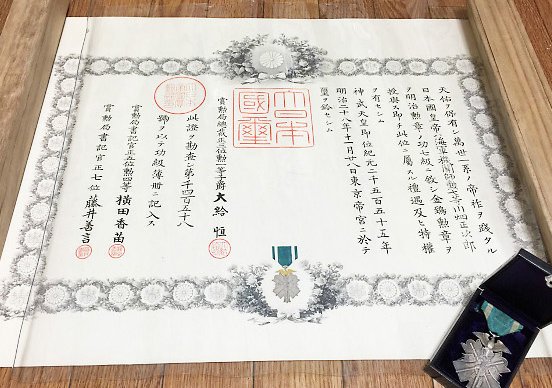 天佑ヲ保有シ萬世一系ノ帝祚ヲ踐タル
日本國皇帝ハ海軍機關師勲等川畑正次郎
ヲ明治勲章ノ功七級ニ敍シ金鵄勲章ヲ
授與ス即チ此位ニ屬スル禮遇及ヒ特權
ヲ有セシム
神武天皇即位紀元二千五百五十五年
明治二十八年十一月十八日東京帝宮ニ於テ
璽ヲ鈐セシム
大日本國璽
賞勲局總裁正三位勲一等子爵大給恒
此證ヲ勘査シ第二千四百五十八
號ヲ以テ功級簿冊ニ記入ス
賞勲局書記官正五位勲四等横田香苗
賞勲局書記官正七位藤井善言